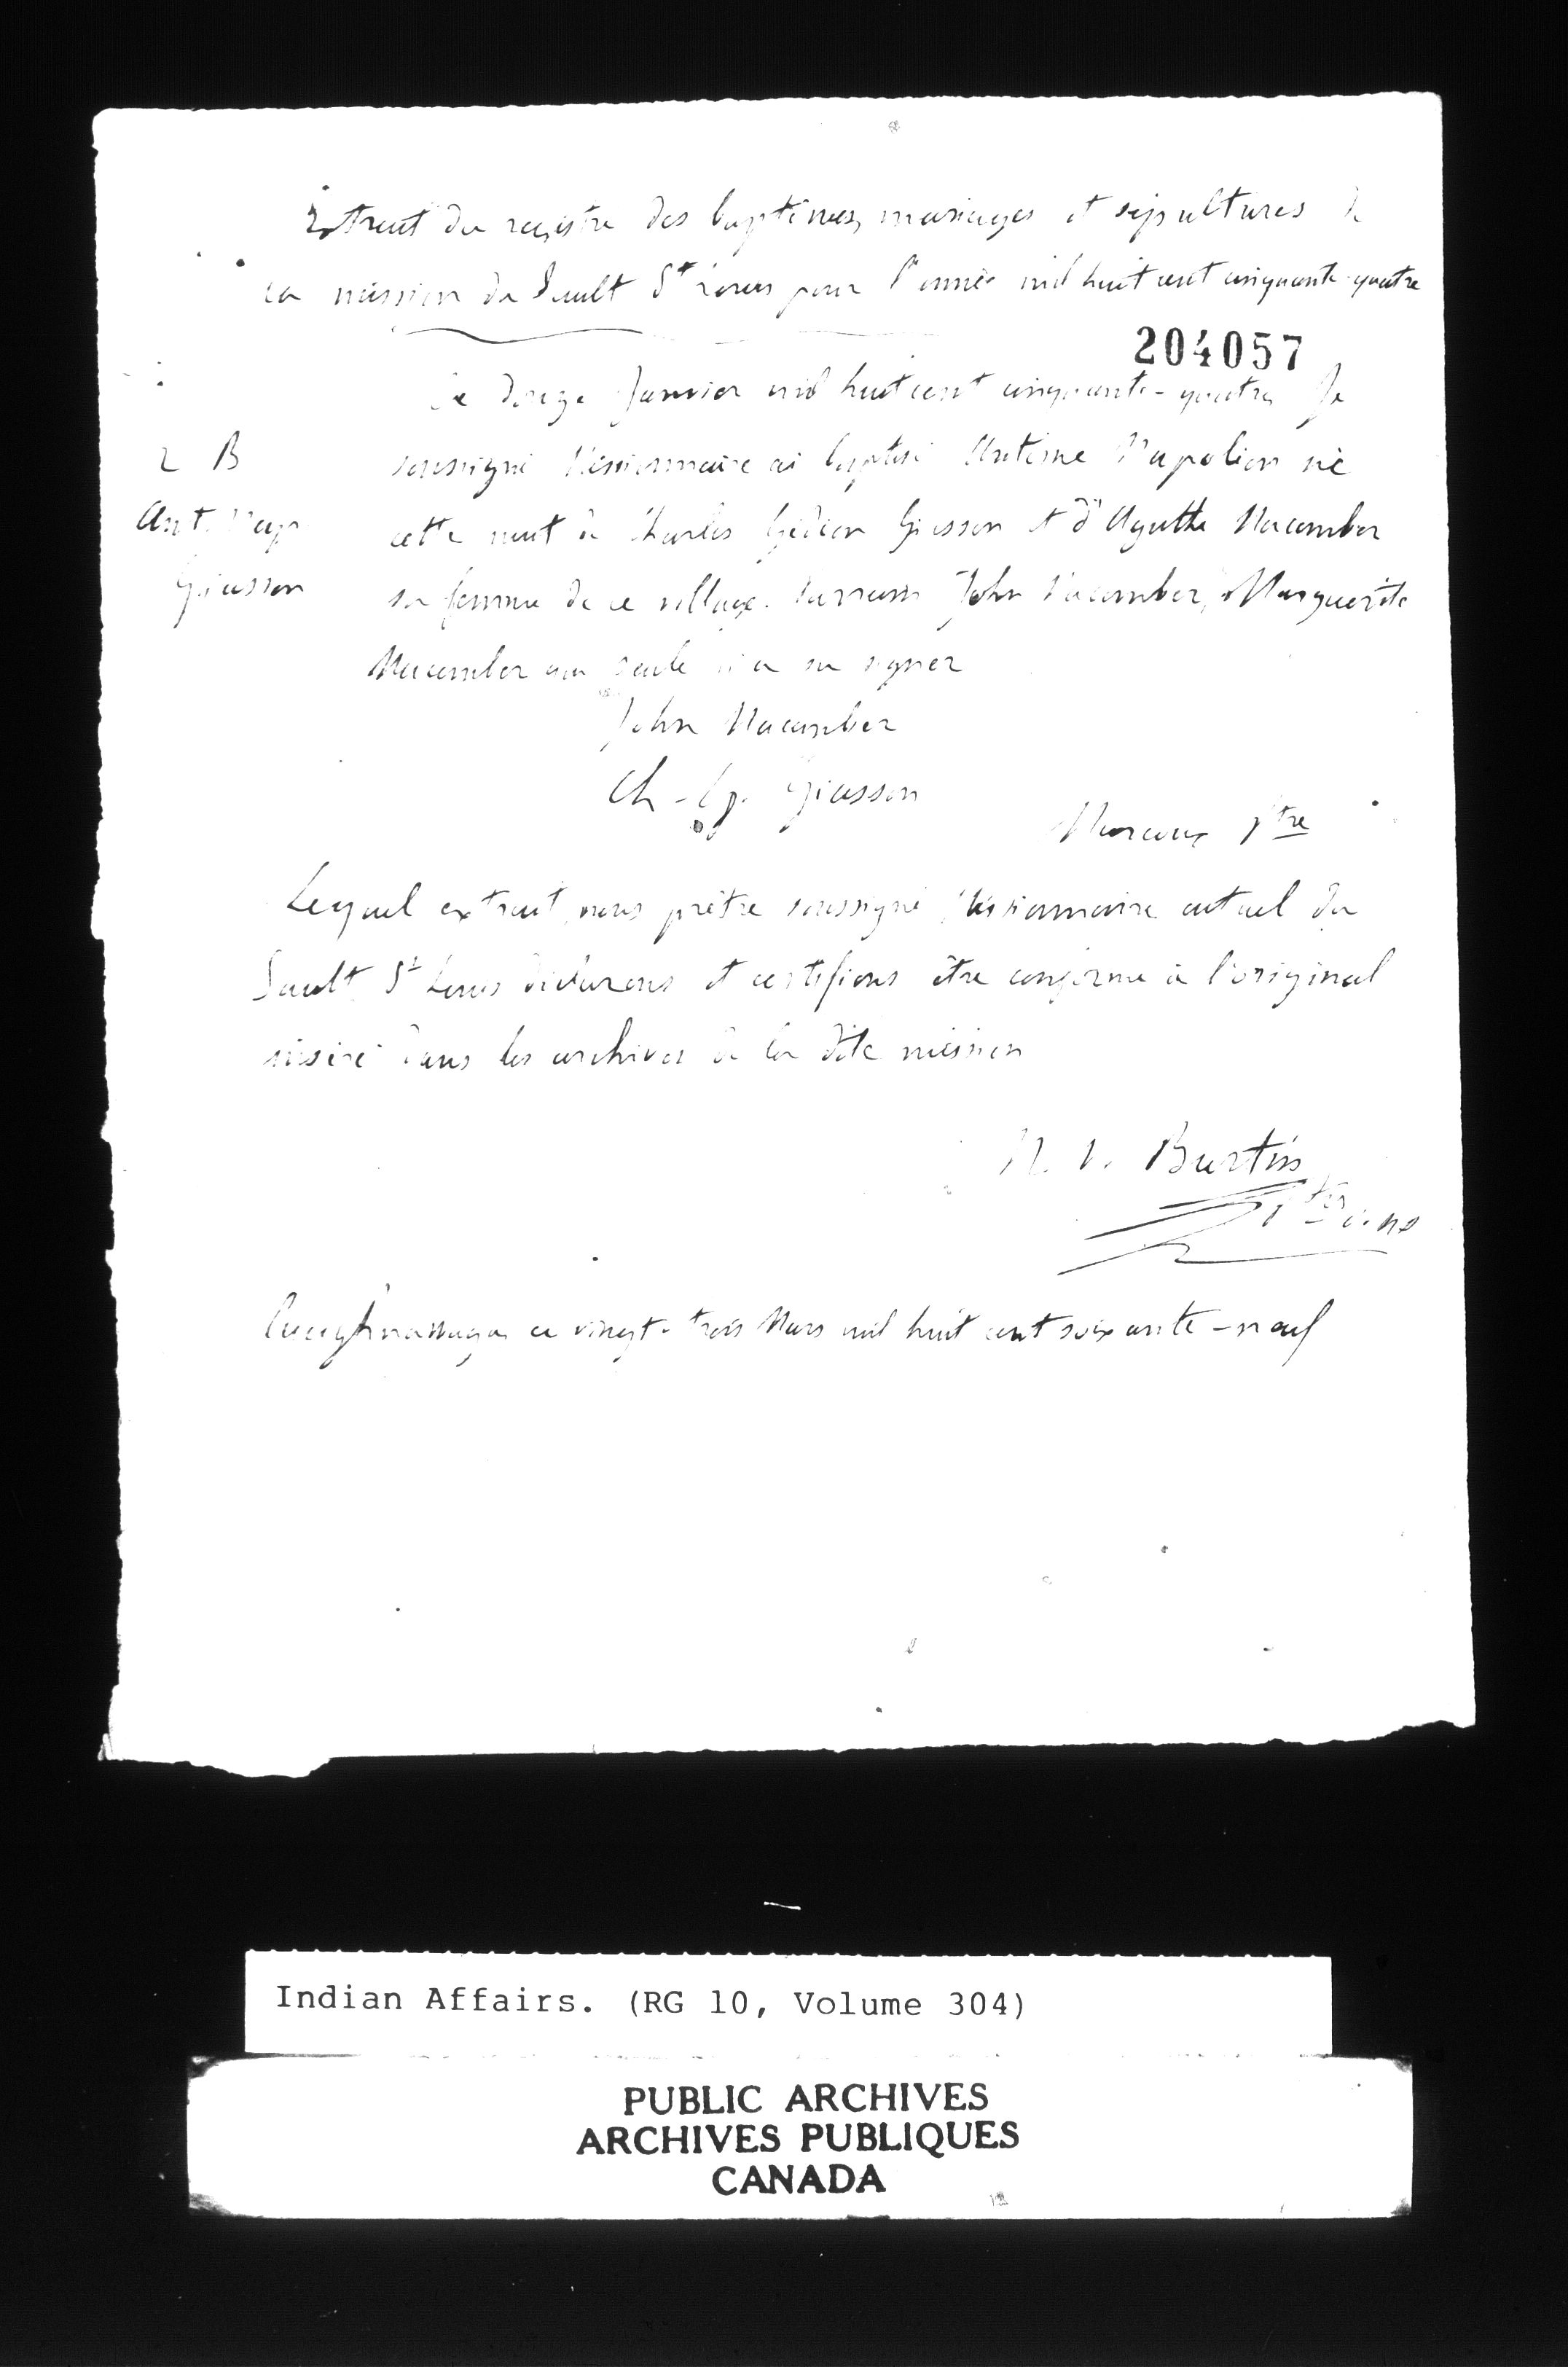 Extrait du registre des baptêmes, mariages et sépultures de
la mission du Sault St Louis pour l'année mil huit cent cinquante-quatre
204057
Le douze Janvier mil huit cent cinquante-quatre Je
2 B
soussigné Missionnaire ai baptisé Antoine Napoléon né
Ant. Nap
cette nuit de Charles Gédéon Giasson et d'Agathe Macomber
Giasson
sa femme de ce village. Parrain John Macomber, Marguerite
Macomber qui seule n'a su signer
John Macomber
Ch. G. Giasson
Marcoux Ptre
Lequel extrait, nous prêtre soussigné Missionnaire actuel du
Sault St Louis déclarons et certifions être conforme à l'original
inséré dans les archives de la dite mission
N. V. Burtin
Ptre o.m.i
Caughnawaga ce vingt-trois Mars mil huit cent soixante-neuf
Indian Affairs. (RG 10, Volume 304)
PUBLIC ARCHIVES
ARCHIVES PUBLIQUES
CANADA